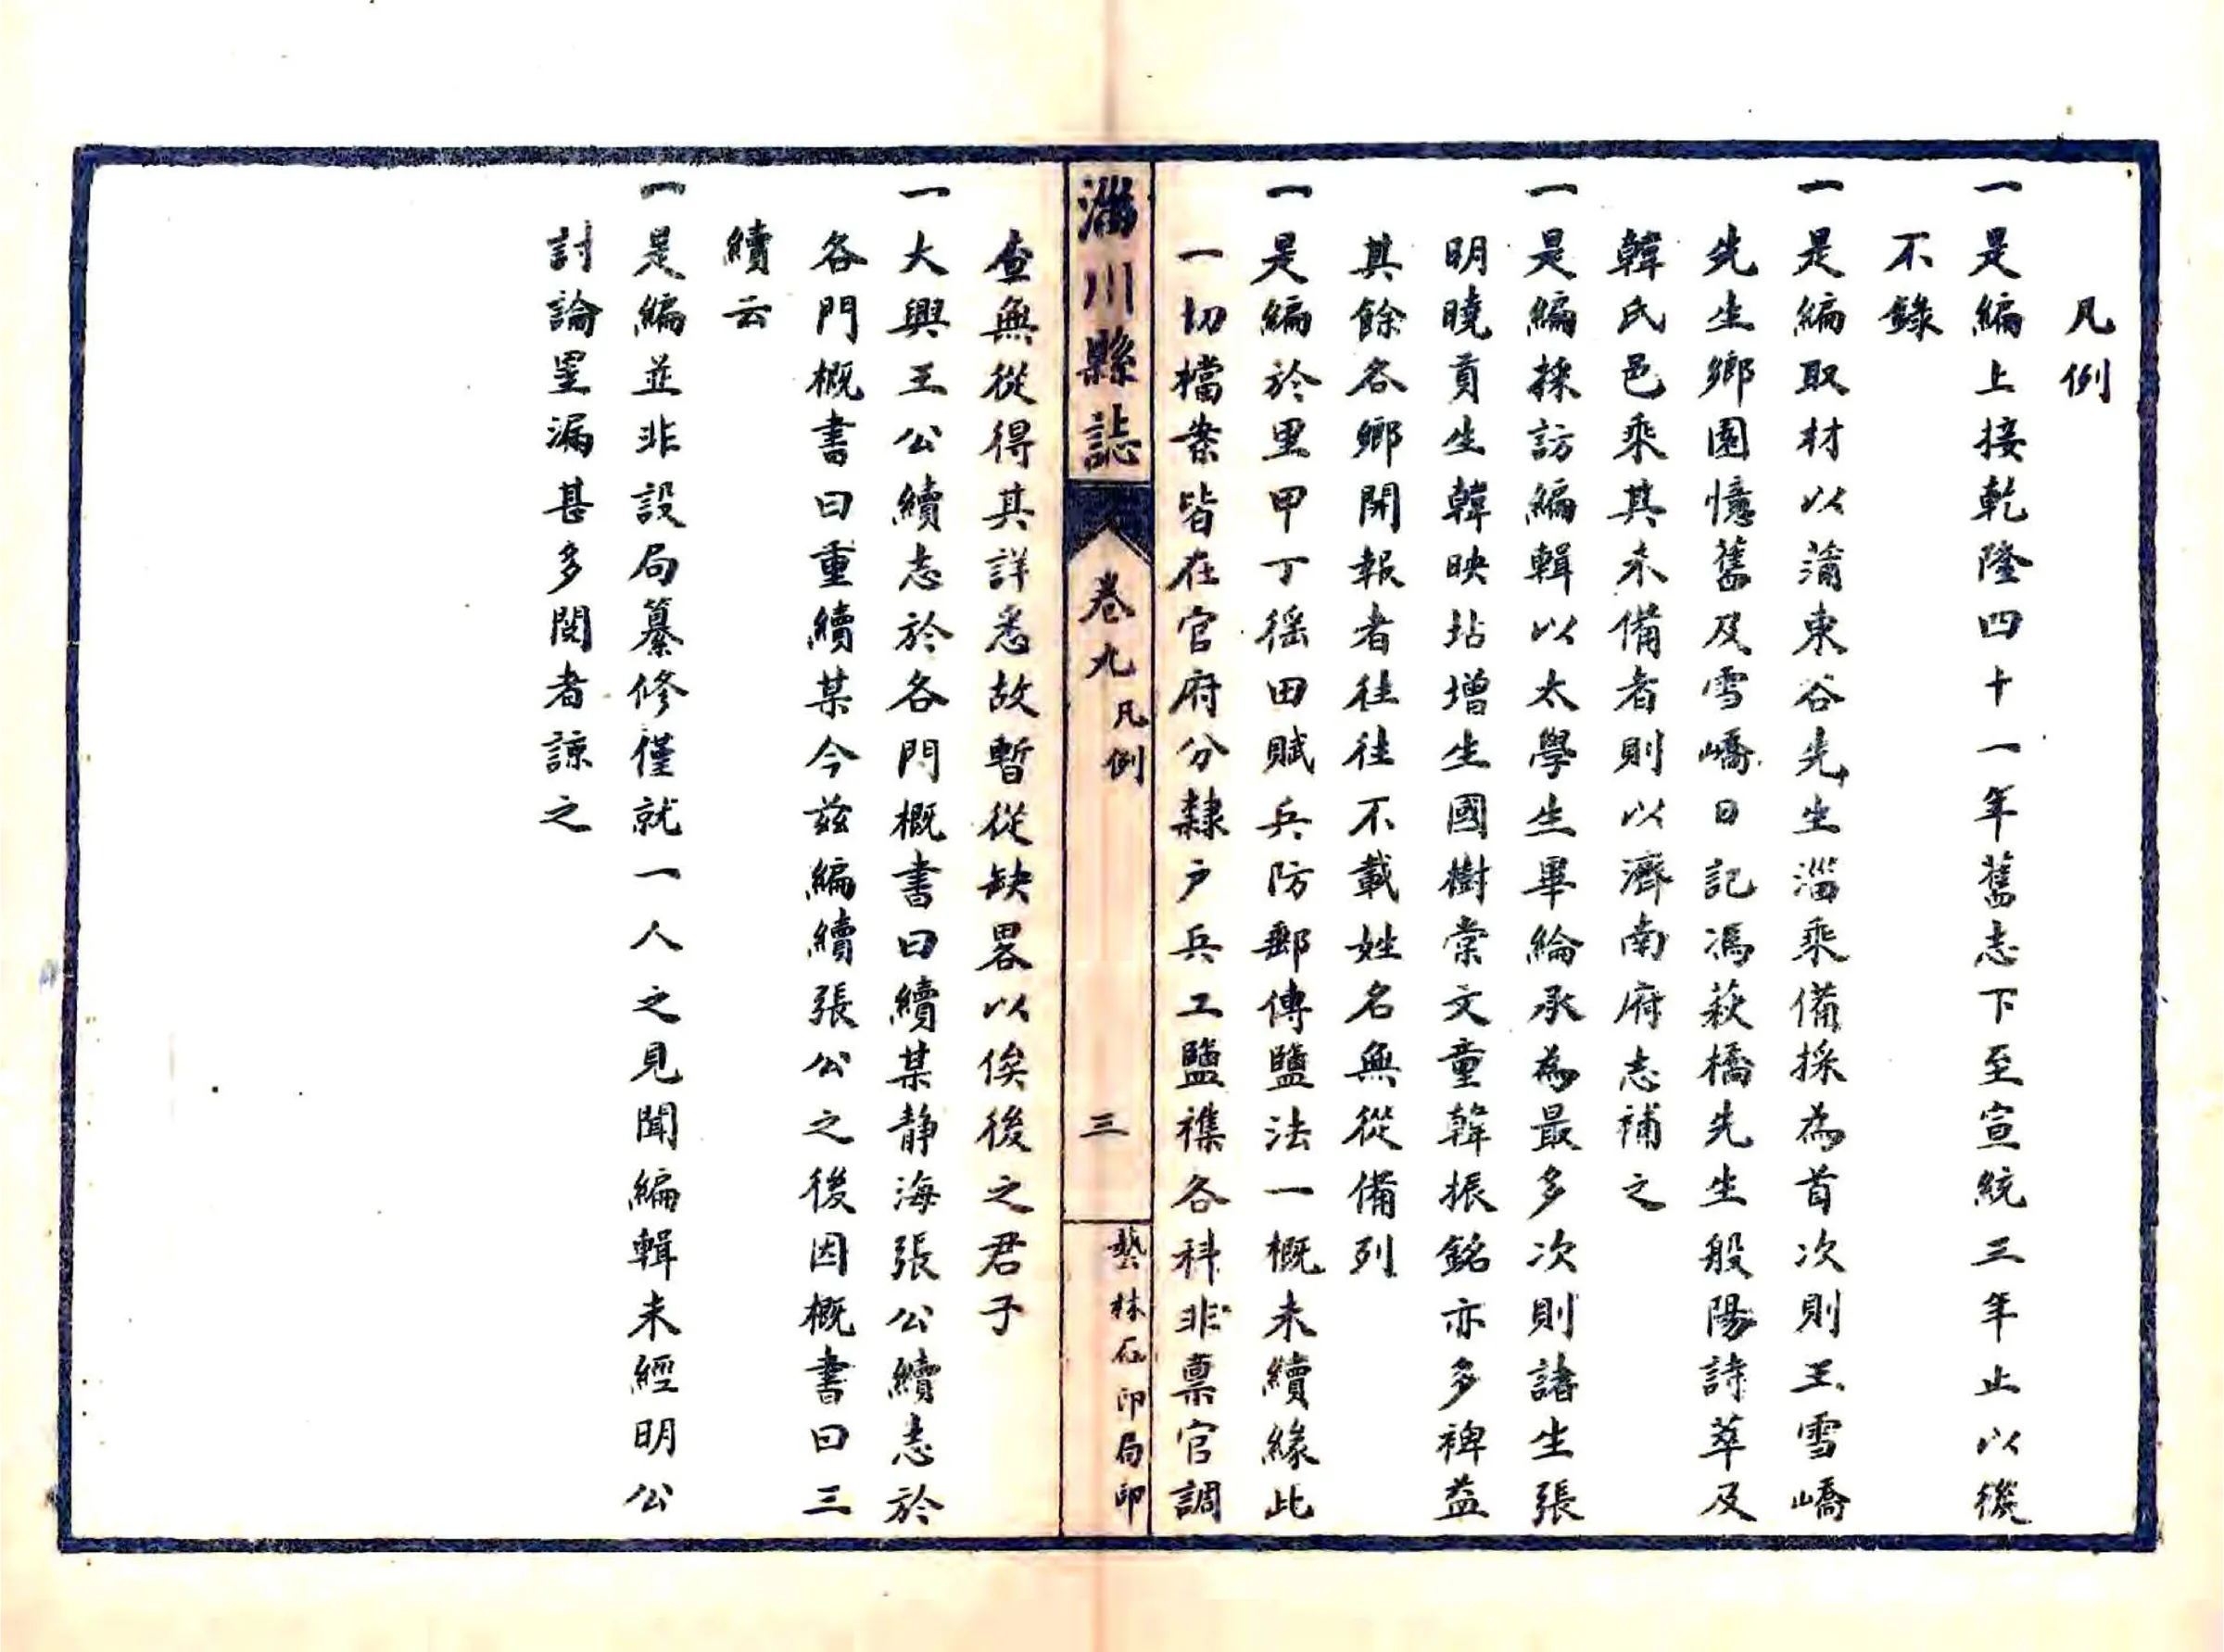 凡例
一是編上接乾隆四十一年舊志下至宣統三年止以後
不錄
一是編取材以蒲東谷先生淄乘備採為首次則王雪嶠
先生鄉園憶舊及雪嶠日記馮萩橋先生般陽詩萃及
韓氏邑乘其未備者則以濟南府志補之
一是編採訪編輯以太學生畢綸承為最多次則諸生張
明曉貢生韓映坫增生國樹棠文童韓振銘亦多裨益
其餘各鄉開報者往往不載姓名無從備列
一是編於里甲丁徭田賦兵防郵傳鹽法一概未續緣此
一切檔案皆在官府分隸户兵工鹽襍各科非禀官調
淄川縣誌
卷九
凡例
三
藝林石印局印
查無從得其詳悉故暫從缺畧以俟後之君子
一大興王公續志於各門概書曰續某静海張公續志於
各門概書曰重續某今兹編續張公之後因概書曰三
續云
一是編並非設局纂修僅就一人之見聞編輯未經明公
討論罣漏甚多閱者諒之